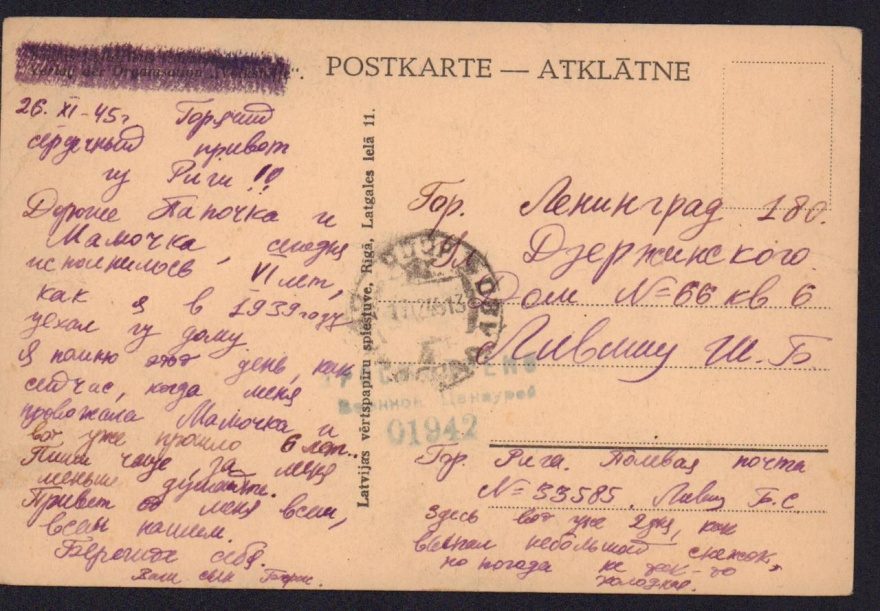 Verlag der Organisation „Volkshilfe“.
POSTKARTE — ATKLĀTNE
26. XI-45г. Горячий
сердечный привет
из Риги !!
Дорогие Папочка и
Мамочка, сегодня
исполнилось VI лет,
как я в 1939 году
уехал из дому
я помню этот день, как
сейчас, когда меня
провожала Мамочка и
вот уже прошло 6 лет.
Пиши чаще, за меня
меньше думайте.
Привет от меня всем,
всем нашим.
Берегите себя.
Ваш сын Борис.
Latvijas vērtspapīru spiestuve, Rīgā, Latgales ielā 11.
Гор. Ленинград 180.
Ул. Дзержинского
Дом №=66 кв 6
Лившиц Ш. Б
Военной Цензурой
01942
Гор. Рига. Полевая почта
№=33585. Лившиц Б. С
Здесь вот уже 2 дня, как
выпал небольшой снежок,
но погода не так-то
холодная.